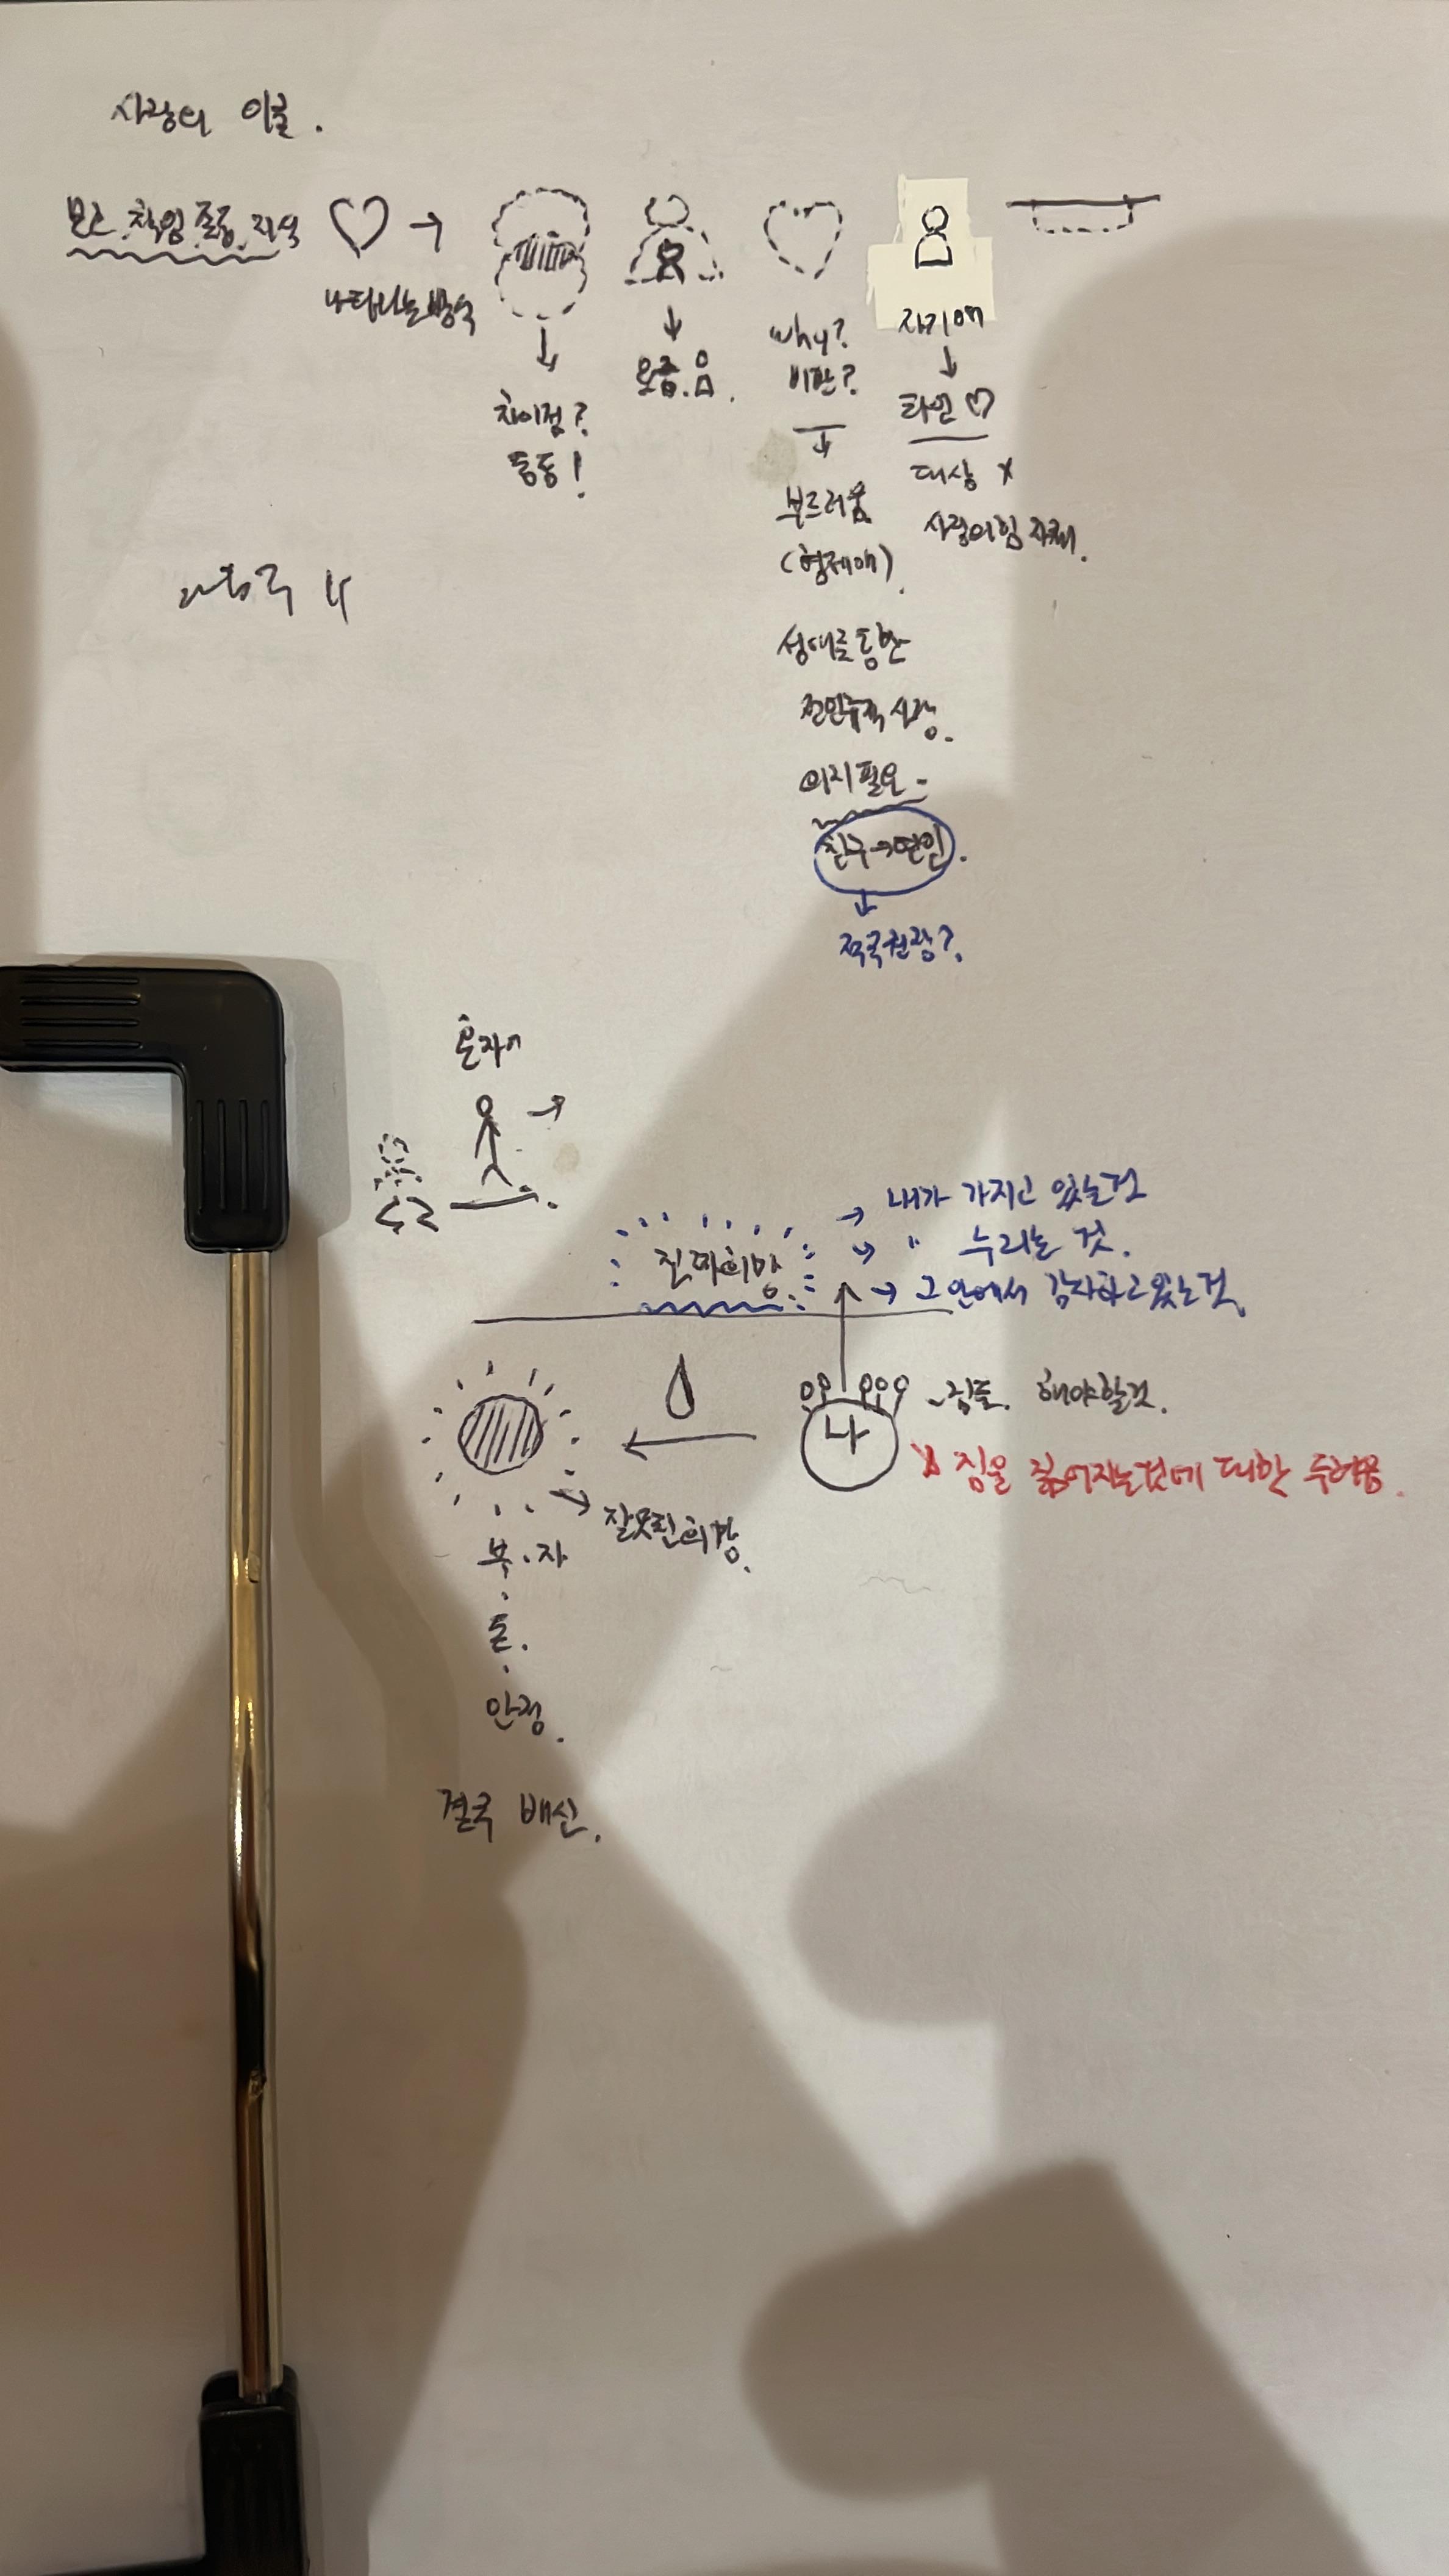 사랑의 이론.
보호.책임.존중.지식
나타나는 방식
차이점?
동등!
요즘.
why?
비판?
부드러움
(형제애).
성애를 통한
전인류적 사랑.
의지 필요
친구→연인.
적극권장?
자기애
타인♡
대상 x
사랑의 힘 자체.
혼자
진짜희망.
→ 내가 가지고 있는것
→ " 누리는 것.
→ 그 안에서 감사하고있는것.
나
짐들. 해야할것.
짐을 짊어지는것에 대한 두려움.
잘못된희망.
부.자
돈.
안정.
결국 배신.